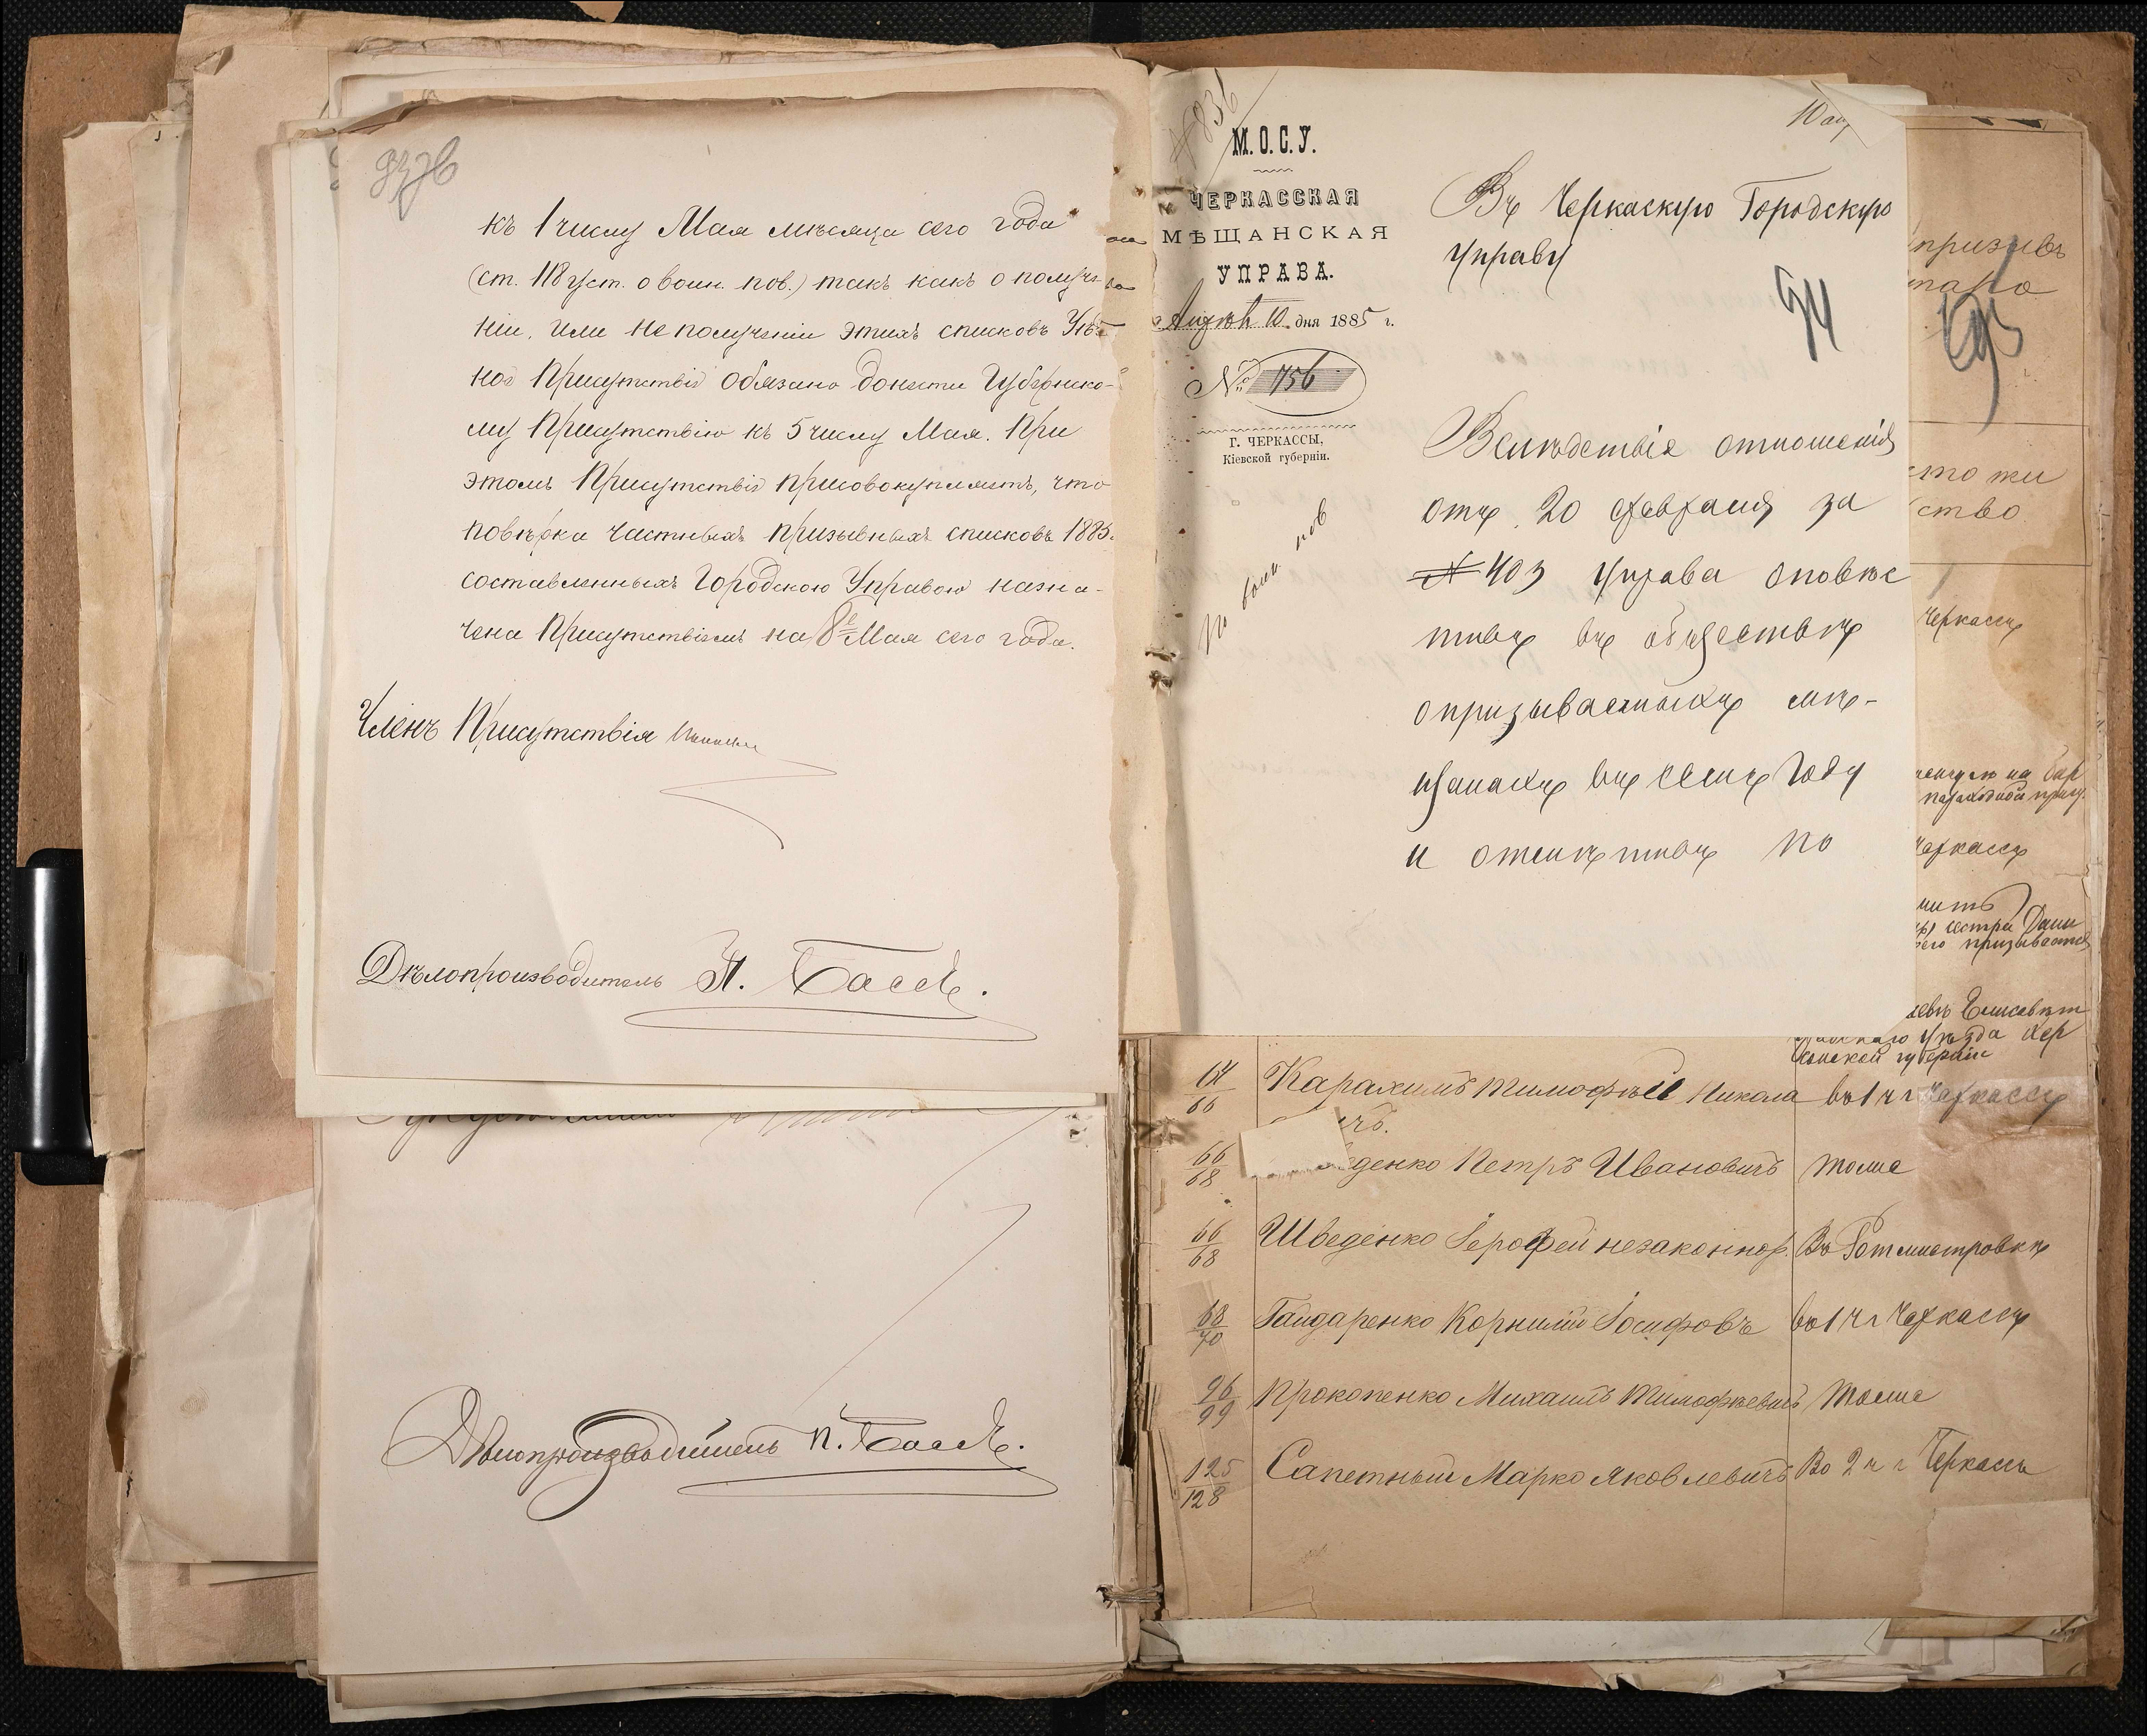 къ 1 числу Мая мѣсяца сего года
(ст. 118 уст. о воин. пов.) такъ какъ о получе
ніи, или не полученіи этихъ списковъ Уѣзд
ное Присутствіе обязано донести Губернско-
му Присутствію къ 5 числу Мая. При
этомъ Присутствіе присовокупляетъ, что
повѣрка частныхъ призывныхъ списковъ 1885.
составленныхъ Городскою Управою назна-
чена Присутствіемъ на 8е Мая сего года.
Членъ Присутствія
Дѣлопроизводитель П. Бассъ.
Дѣлопроизводитель П. Бассъ.
М.О.С.У.
ЧЕРКАССКАЯ
МѢЩАНСКАЯ
УПРАВА.
Апрѣля 10 дня 1885 г.
№ 756
Г. ЧЕРКАССЫ,
Кіевской губерніи.
По воин пов
Въ Черкаскую Городскую
Управу
94
Вслѣдствіе отношенія
отъ 20 февраля за
№ 403 Управа оповѣс
тивъ въ обществѣ
о призываемыхъ мѣ-
щанахъ въ семъ году
и отмѣтивъ по
призывъ
95
ство
Черкассы
Черкассы
сестра Дани
его призывается
Елисавет
уѣзда Хер
сонской губерніи
64/66 Карахимъ Тимофѣй Никола въ 1 ч г Черкассы
ичъ.
66/68 денко Петръ Ивановичъ тоже
66/68 Шведенко Іерофей незаконнор. Въ Ротмистровкѣ
68/70 Гайдаренко Корнилій Іосифовъ въ 1 ч г Черкассы
96/99 Прокопенко Михаилъ Тимофѣевичъ тоже
125/128 Сапетный Марко Яковлевичъ Во 2 ч г Черкассы